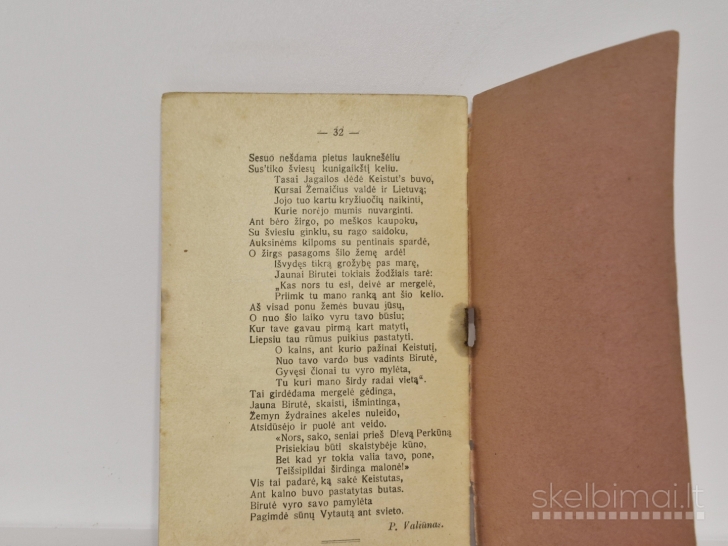 — 32 —
Sesuo nešdama pietus lauknešėliu
Sus'tiko šviesų kunigaikštį keliu.
Tasai Jagailos Jėdė Keistut's buvo,
Kursai Žemaičius valdė ir Lietuvą;
Jojo tuo kartu kryžiuočių naikinti,
Kurie norėjo mumis nuvarginti.
Ant bėro žirgo, po meškos kaupoku,
Su šviesiu ginklu, su rago saidoku,
Auksinėms kilpoms su pentinais spardė,
O žirgs pasagoms šilo žemę ardė!
Išvydęs tikrą grožybę pas marę,
Jaunai Birutei tokiais žodžiais tarė:
„Kas nors tu esi, deivė ar mergelė,
Priimk tu mano ranką ant šio kelio.
Aš visad ponu žemės buvau jūsų,
O nuo šio laiko vyru tavo būsiu;
Kur tave gavau pirmą kart matyti,
Liepsiu tau rūmus puikius pastatyti.
O kalns, ant kurio pažinai Keistutį,
Nuo tavo vardo bus vadints Birutė,
Gyvęsi čionai tu vyro mylėta,
Tu kuri mano širdy radai vietą“.
Tai girdėdama mergelė gėdinga,
Jauna Birutė, skaisti, išmintinga,
Žemyn žydraines akeles nuleido,
Atsidūsėjo ir puolė ant veido.
«Nors, sako, seniai prieš Dievą Perkūną
Prisiekiau būti skaistybėje kūno,
Bet kad yr tokia valia tavo, pone,
Teišsipildai širdinga malonė!»
Vis tai padarė, ką sakė Keistutas,
Ant kalno buvo pastatytas butas.
Birutė vyro savo pamylėta
Pagimdė sūnų Vytautą ant svieto.
P. Valiūnas.
skelbimai.lt